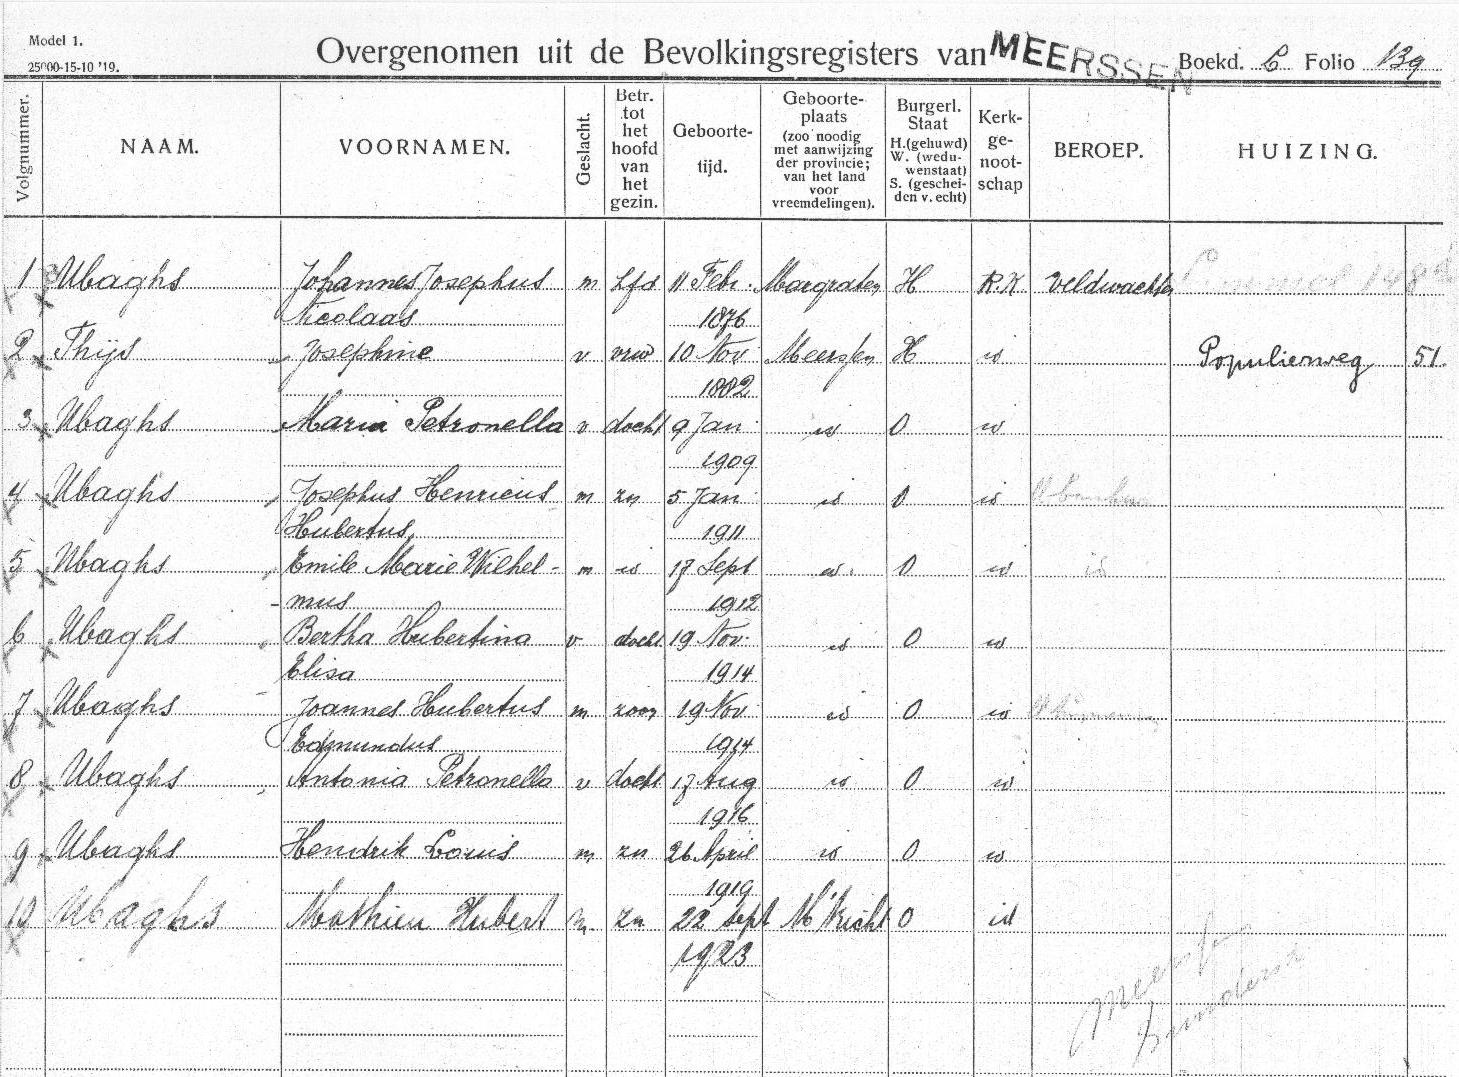 Model 1.
25000-15-10 '19.
Overgenomen uit de Bevolkingsregisters van MEERSSEN Boekd. C Folio 139
Volgnummer. NAAM. VOORNAMEN. Geslacht. Betr. tot het hoofd van het gezin. Geboorte-tijd. Geboorte-plaats (zoo noodig met aanwijzing der provincie; van het land voor vreemdelingen). Burgerl. Staat H.(gehuwd) W. (weduwenstaat) S. (gescheiden v. echt) Kerk-ge-noot-schap BEROEP. HUIZING.
1 Ubaghs Johannes Josephus m hfd 11 Febr. Margraten H R.K veldwachter
Nicolaas 1876
2 Thijs Josephine v vrw 10 Nov Meerssen H id Populierweg 51
1882
3 Ubaghs Maria Petronella v docht 9 Jan id O id
1909
4 Ubaghs Josephus Henricus m zn 5 Jan id O id
Hubertus 1911
5 Ubaghs Emile Marie Wilhel- m id 17 Sept id O id id
mus 1912
6 Ubaghs Bertha Hubertina v docht 19 Nov. id O id
Elisa 1914
7 Ubaghs Joannes Hubertus m zoon 19 Nov id O id
Edmundus 1914
8 Ubaghs Antonia Petronella v docht 17 Aug id O id
1916
9 Ubaghs Hendrik Louis m zn 26 April id O id
1919
10 Ubaghs Mathieu Hubert m. zn 22 Sept M'tricht O id
1923
Meerssen